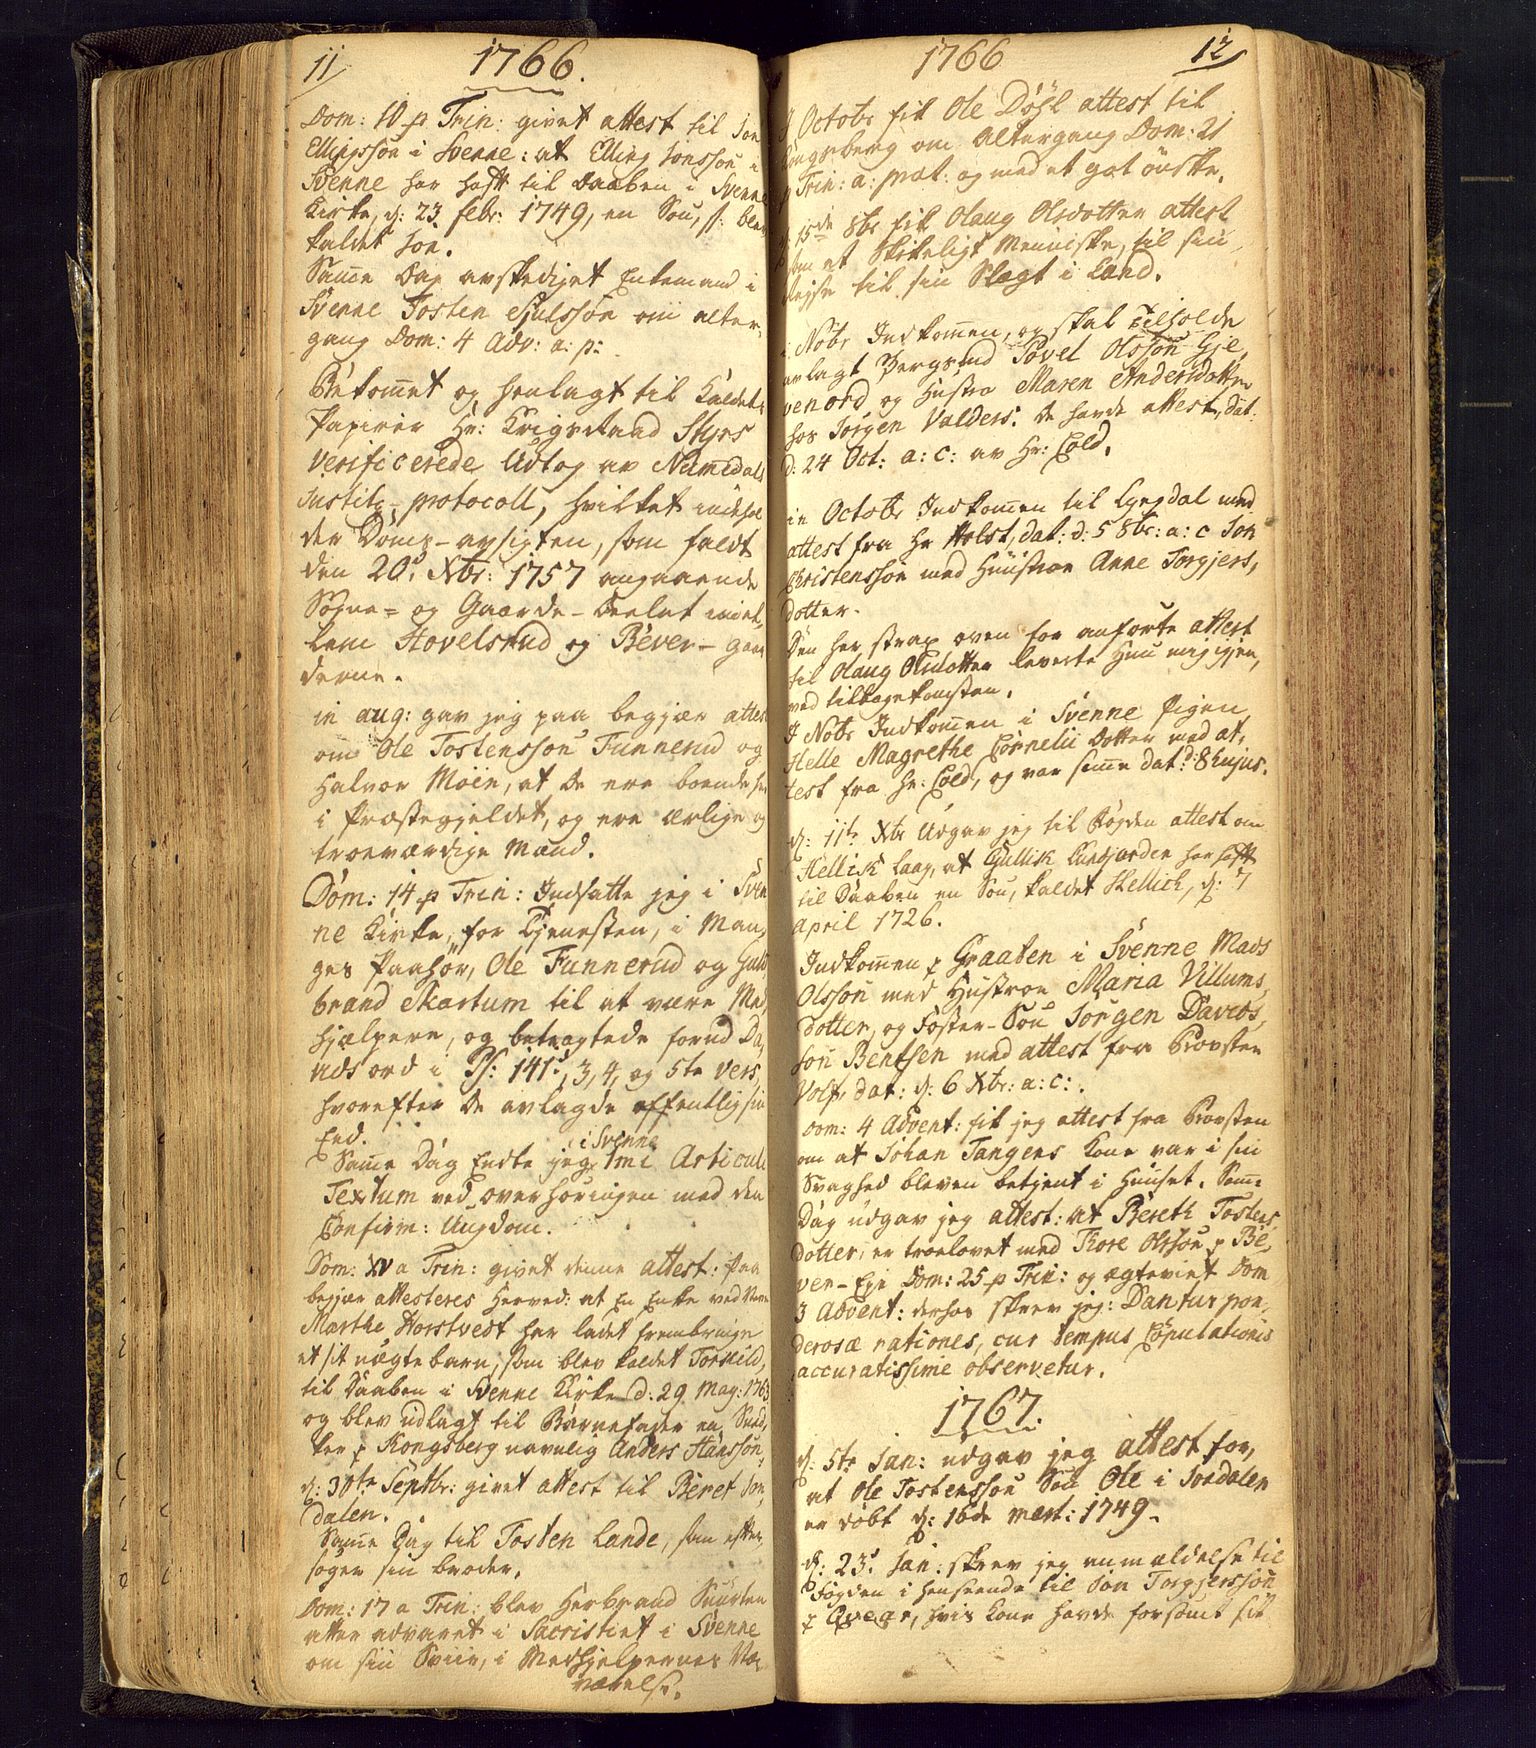 11/
1766.
Dom: 10 p Trin: givet attest til Jon
Ellingssön i Svenne: at Elling Jonssön i
Svenne har haft til Daaben i Svenne
Kirke, d: 23 febr: 1749, en Sön, s: blev
kaldet Jon.
Samme Dag avskediget Enkemand i
Svenne Tosten Gulssön om alter,
gang Dom: 4 Adv: a: p:
Bekommet og henlagt til Kaldets
Papirer Hr: Krigsraad Styrs
Verificerede Udtog av Numedals
Justitz-protocoll, hvilket indehol
der Doms-avsigten, som faldt
den 20de Xbr: 1757 angaaende
Sogne- og Gaarde-Deelet imel,
lem Hovelsrud og Bever-gaar
derne.
in aug: gav jeg paa begjær attest
om Ole Tostenssön Funnerud og
Halvor Moen, at de ere boende her
i Præstegjeldet, og ere ærlige og
troeværdige Mænd.
Dom: 14 p Trin: Indsatte jeg i Sven
ne Kirke, for Tjenesten, i Man,
ges Paahör, Ole Funnerud og Guld
brand Skartum til at være Med,
hjælpere, og betragtede forud Da,
vids ord i Ps: 141, 3, 4, og 5te vers,
hvorefter de avlagde offentlig sin
Eed.
Samme Dag Endte jeg i Svenne 1mi Articuli
Textum ved overhöringen med den
Confirm: Ungdom.
Dom: XV a Trin: givet denne attest: paa
begjær attesteres herved: at En Enke ved Navn
Marthe Horstvedt har ladet frembringe
et sit uægte barn, som blev kaldet Torskild,
til Daaben i Svenne Kirke d: 29 Maj: 1763
og blev udlagt til Barnefader en Sned,
ker p Kongsberg navnlig Anders Hanssön,
d: 30te Septbr: givet attest til Beret Jon
dalen.
Samme Dag til Tosten Lande, som efter,
söger sin broder.
Dom: 17 a Trin: blev Herbrand Snurten
atter advaret i Sacristiet i Svenne
om sin Sviir, i Medhjelpernes Næ,
værelse.
1766
12/
I Octobr fik Ole Döhl attest til
Kongsberg om Altergang Dom: 21
p Trin: a: præt: og med et got önske.
d: 15de 8br fik Olaug Olsdotter attest
som et skikkeligt Menniske, til sin
Rejse til sin Slegt i Land.
i Nobr Indkommen, og skal tilholde
avlagt Bergsmd Povel Olssön Gje,
venord og Hustro Maren Andersdotter
hos Jörgen Valders. De havde attest, dat:
d: 24 Oct: a: c: av Hr: Cold.
in Octobr Indkommen til Lyngdal med
attest fra Hr Holst, dat: d: 5 8br: a: c Jon
Christenssön med Huustroe Anne Torgjers,
dotter.
Den her strax oven for anförte attest
til Olaug Olsdotter leverte Hun mig igjen,
ved tilbagekomsten.
I Nobr Indkommen i Svenne Pigen
Helle Magrethe Cornelii Dotter med at,
test fra Hr: Cold, og var samme dat: d: 8 hujus.
d: 11te Xbr Udgav jeg til Fogden attest om
Hellik Laag, at Gullik Lundjorden har haft
til Daaben en Sön, kaldet Hellich, d: 7
April 1726.
Indkommen p Graaten i Svenne Mads
Olssön med Hustroe Maria Villums,
dotter, og Foster-Sön Jörgen Davids,
sön Bentsen med attest fra Provsten
Volf, dat: d: 6 Xbr: a: c:.
Dom: 4 Advent: fik jeg attest fra Provsten
om at Johan Tangens Kone var i sin
Svaghed bleven betjent i Huuset. Samme
Dag udgav jeg attest: at Bereth Tostens,
dotter, er troelovet med Thore Olssön p Be,
ver-Eje Dom: 25 p Trin: og ægteviet Dom
3 Advent: derhos skrev jeg: Dantur pon,
derosæ rationes, cur tempus Copulationis
accuratissime observetur.
1767.
d: 5te Jan: udgav jeg attest for,
at Ole Tostenssön Sön Ole i Jondalen
er döbt d: 16de mart: 1749.
d: 23de Jan: skrev jeg anmældelse til
Fogden i Henseende til Jon Torgjerssön
p Qvear, hvis Kone havde forsömt sit